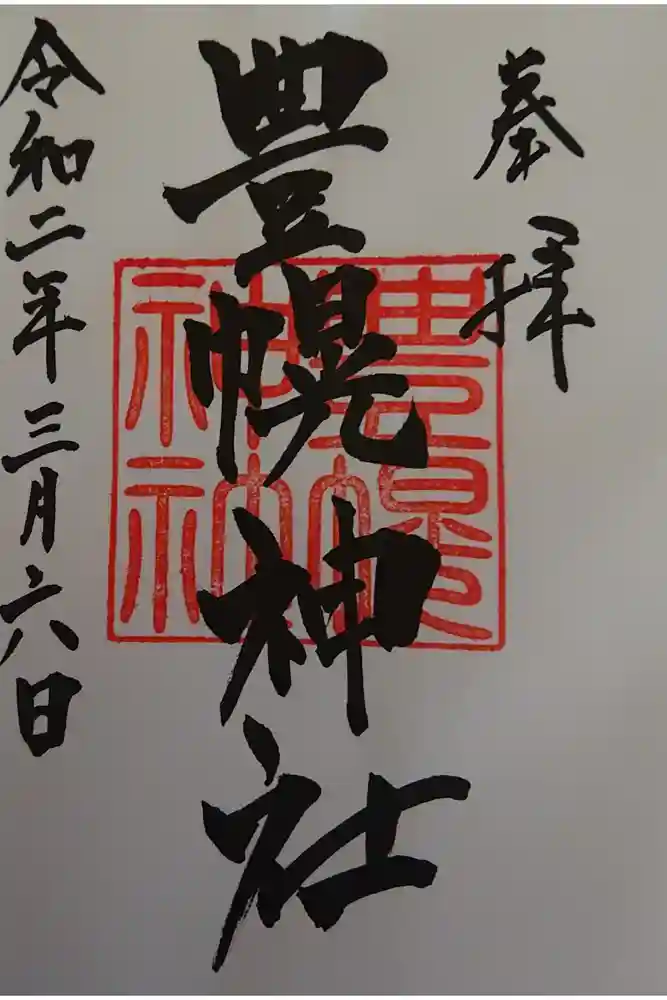 奉拝
豊幌神社
豊幌神社
令和二年三月六日